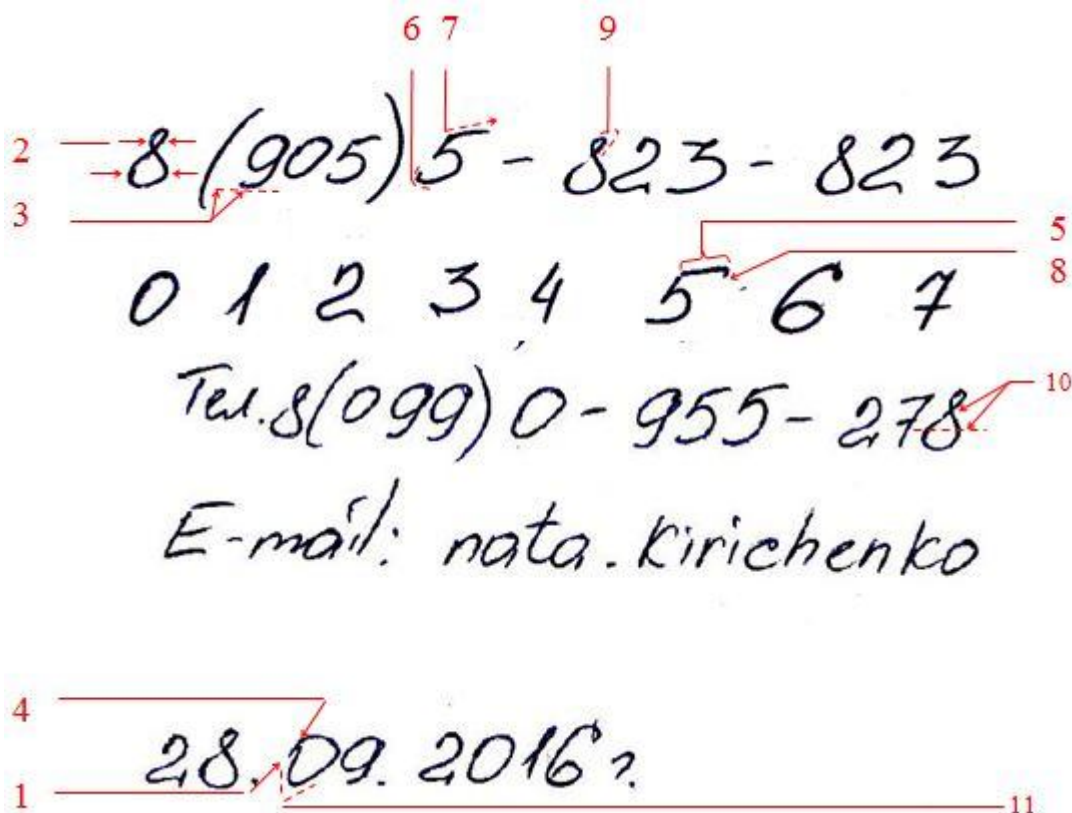 6 7 9
2 8(905)5-823-823
3
5
0 1 2 3 4 5 6 7 8
Тел.8(099)0-955-278 10
E-mail: nata.kirichenko
4
28.09.2016г.
1 11